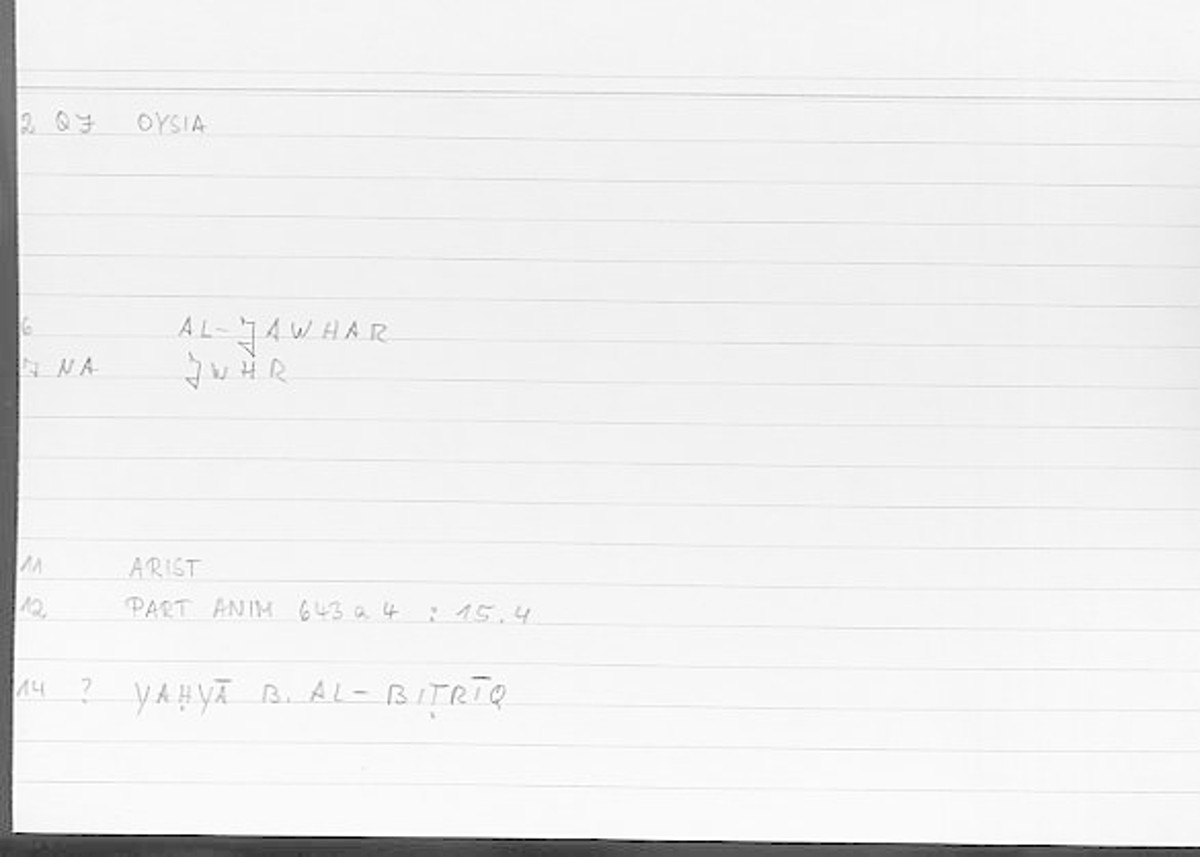 2 QJ OYSIA
6 AL-JAWHAR
7 NA JWHR
11 ARIST
12 PART ANIM 643a4 : 15.4
14 ? YAḤYĀ B. AL-BIṬRĪQ